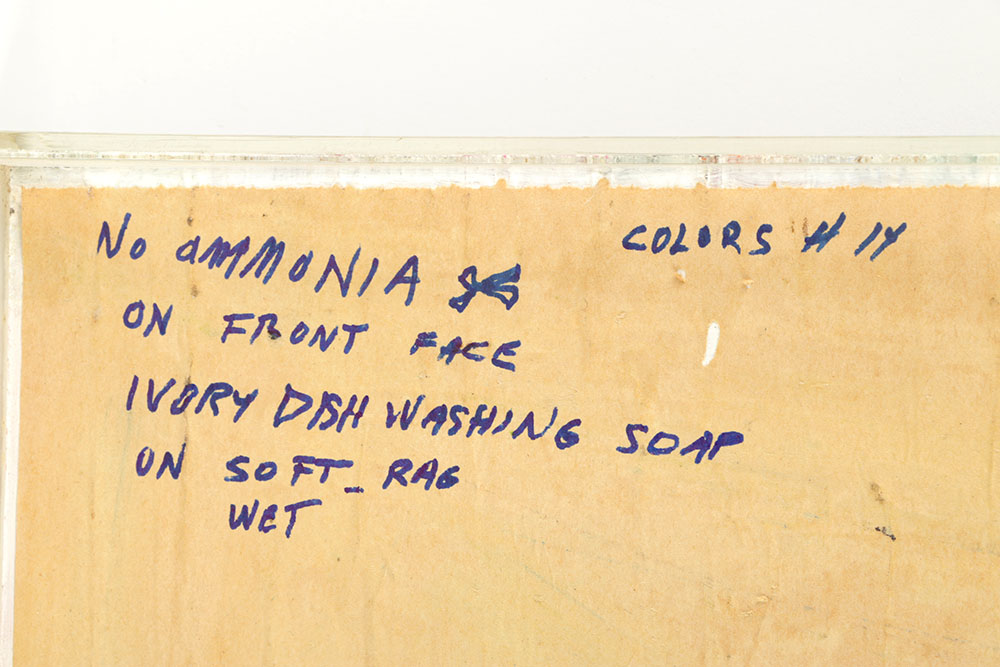 No AMMONIA
COLORS # 14
ON FRONT FACE
IVORY DISH WASHING SOAP
ON SOFT_RAG
WET